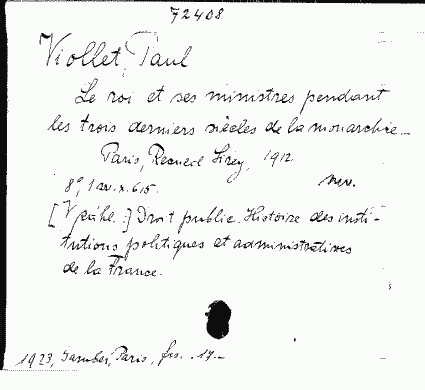 72408
Viollet, Paul
Le roi et ses ministres pendant
les trois derniers siècles de la monarchie.
Paris, Recueil Sirey, 1912
8°, 1 x. 615.
[V] Droit public. Histoire des insti-
tutions politiques et administratives
de la France.
1923, Gamber, Paris, frs. 17.-